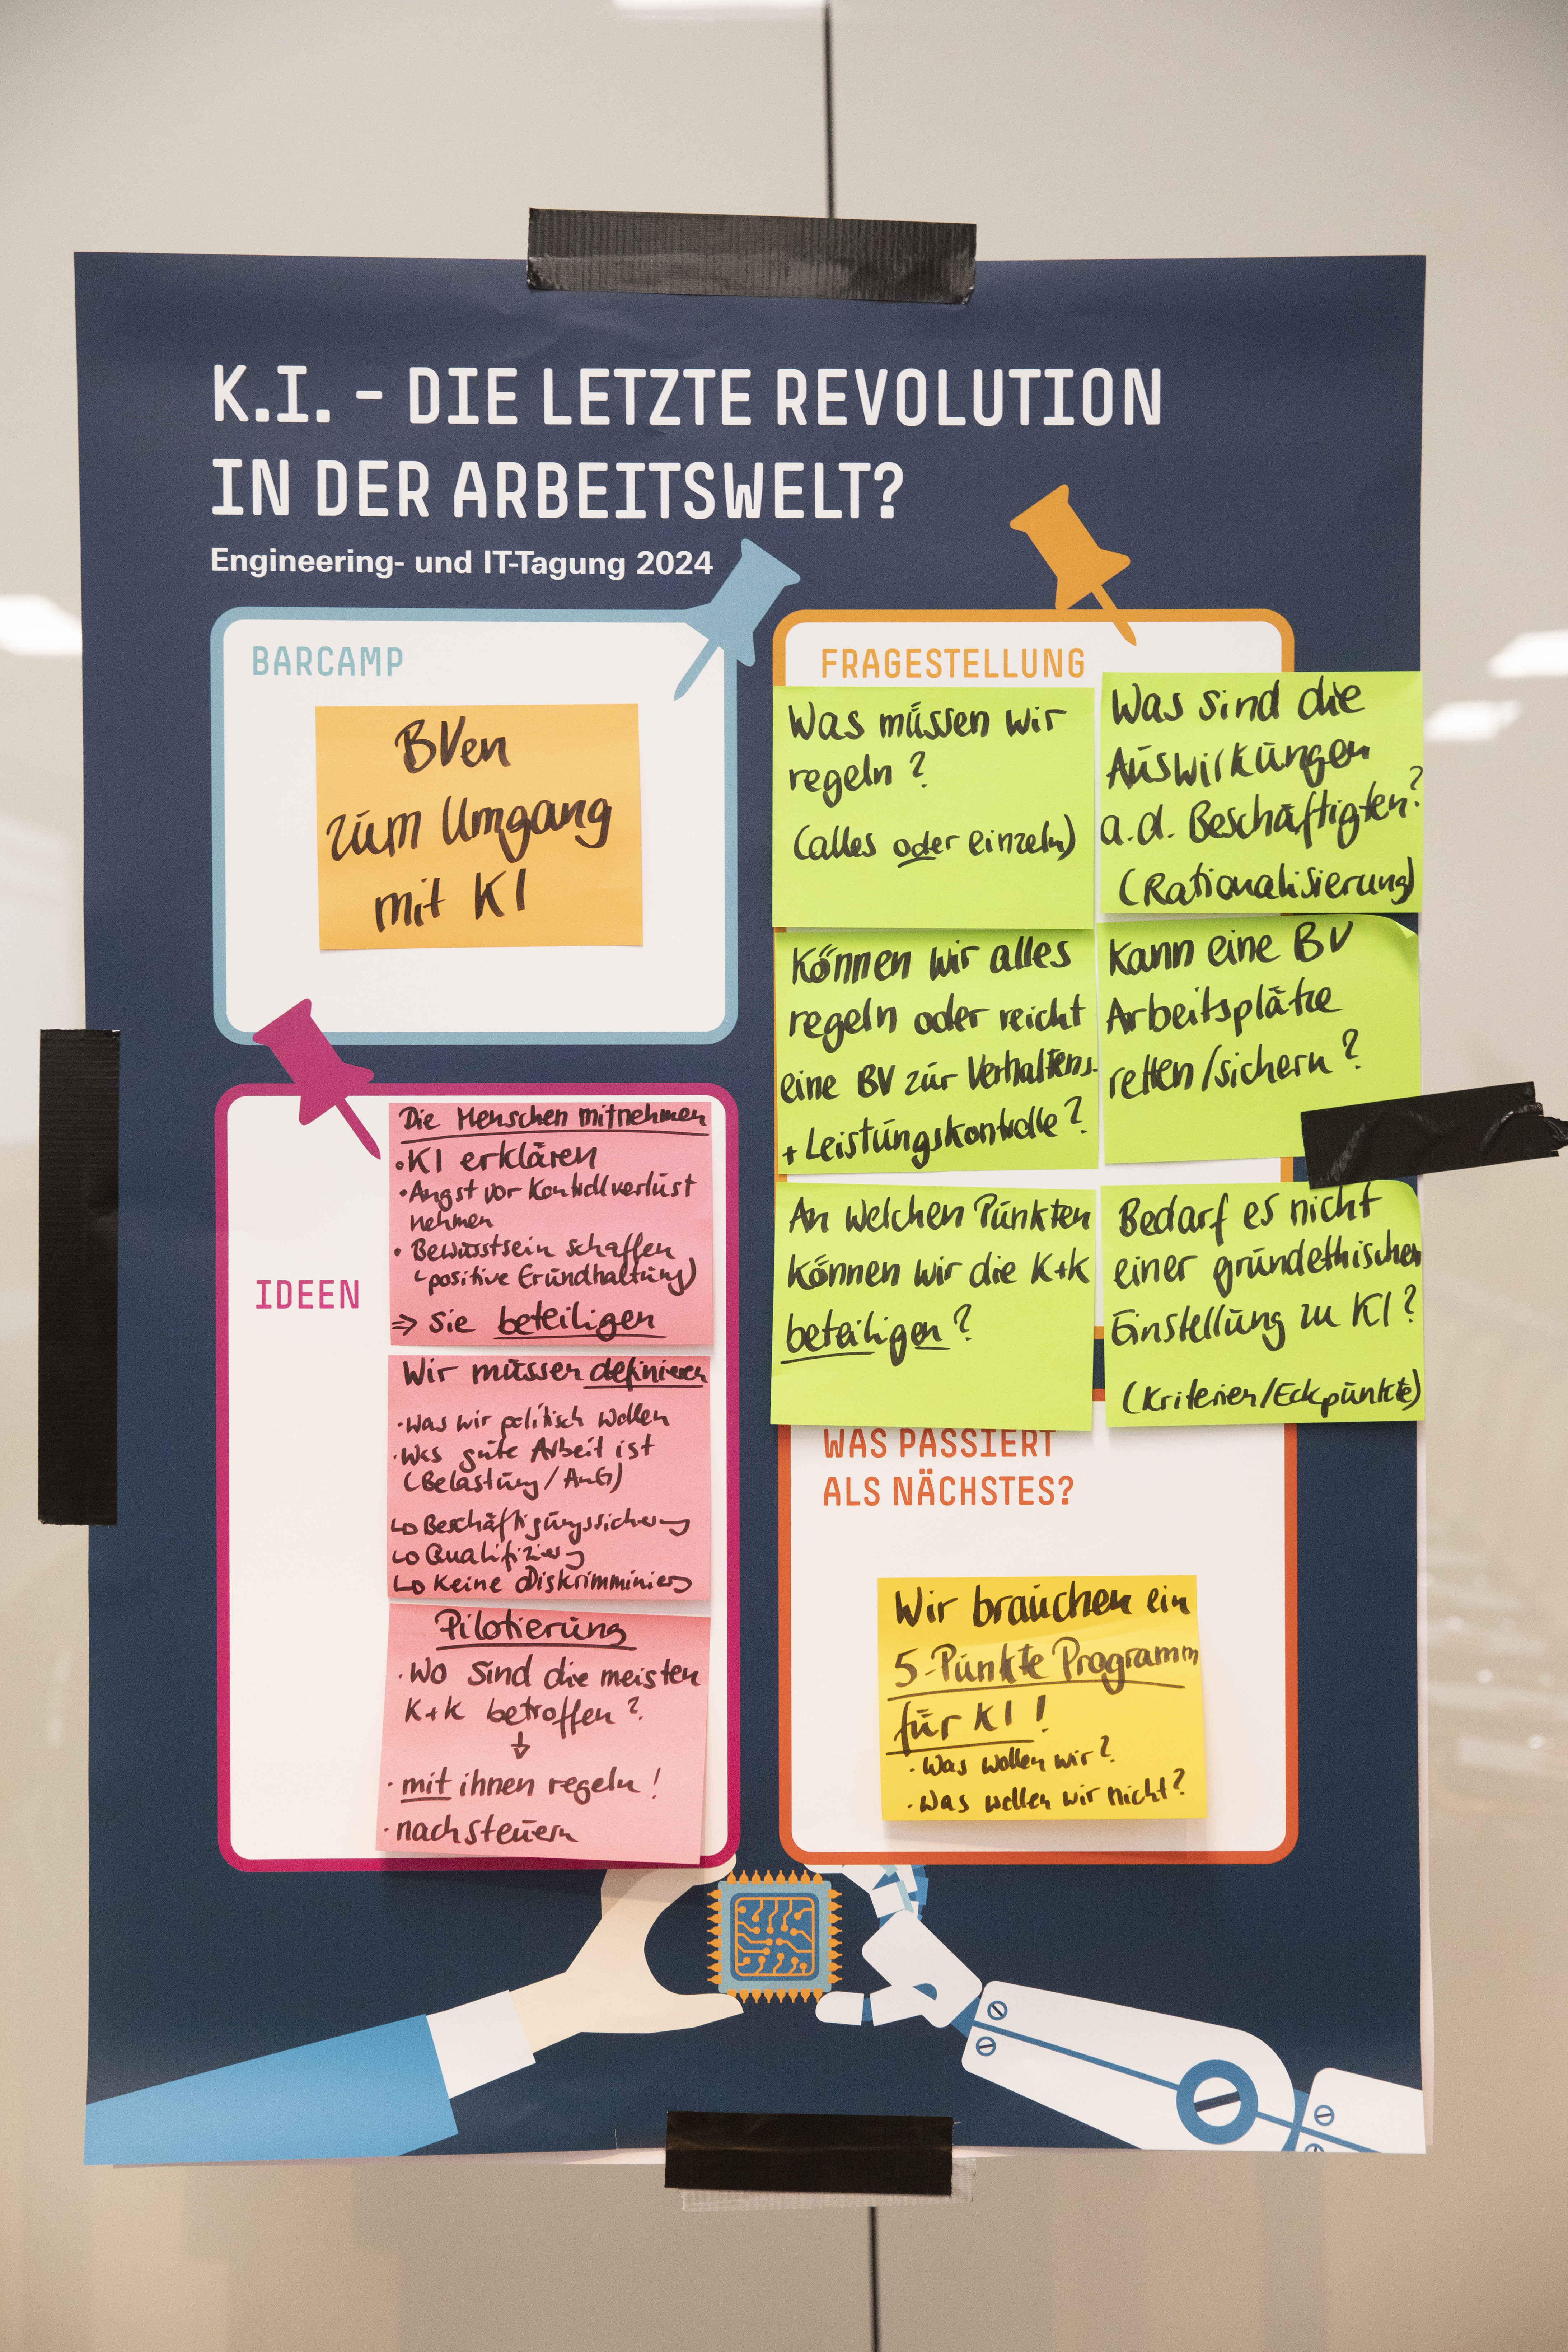 K.I. - DIE LETZTE REVOLUTION
IN DER ARBEITSWELT?
Engineering- und IT-Tagung 2024
BARCAMP
BVen
zum Umgang
mit KI
FRAGESTELLUNG
Was müssen wir
regeln?
(alles oder einzeln)
Was sind die
Auswirkungen
a.d. Beschäftigten?
(Rationalisierung)
Können wir alles
regeln oder reicht
eine BV zur Verhaltens-
+ Leistungskontrolle?
Kann eine BV
Arbeitsplätze
retten/sichern?
An welchen Punkten
können wir die K+K
beteiligen?
Bedarf es nicht
einer grundethischen
Einstellung zu KI?
(Kriterien/Eckpunkte)
IDEEN
Die Menschen mitnehmen
• KI erklären
• Angst vor Kontrollverlust
nehmen
• Bewusstsein schaffen
(positive Grundhaltung)
⇒ sie beteiligen
Wir müssen definieren
• was wir politisch wollen
• Was gute Arbeit ist
(Belastung/AuG)
↳ Beschäftigungssicherung
↳ Qualifizierung
↳ Keine Diskrimminierung
Pilotierung
• Wo sind die meisten
K+K betroffen?
↓
• mit ihnen regeln!
• nachsteuern
WAS PASSIERT
ALS NÄCHSTES?
Wir brauchen ein
5-Punkte Programm
für KI!
• Was wollen wir?
• Was wollen wir nicht?